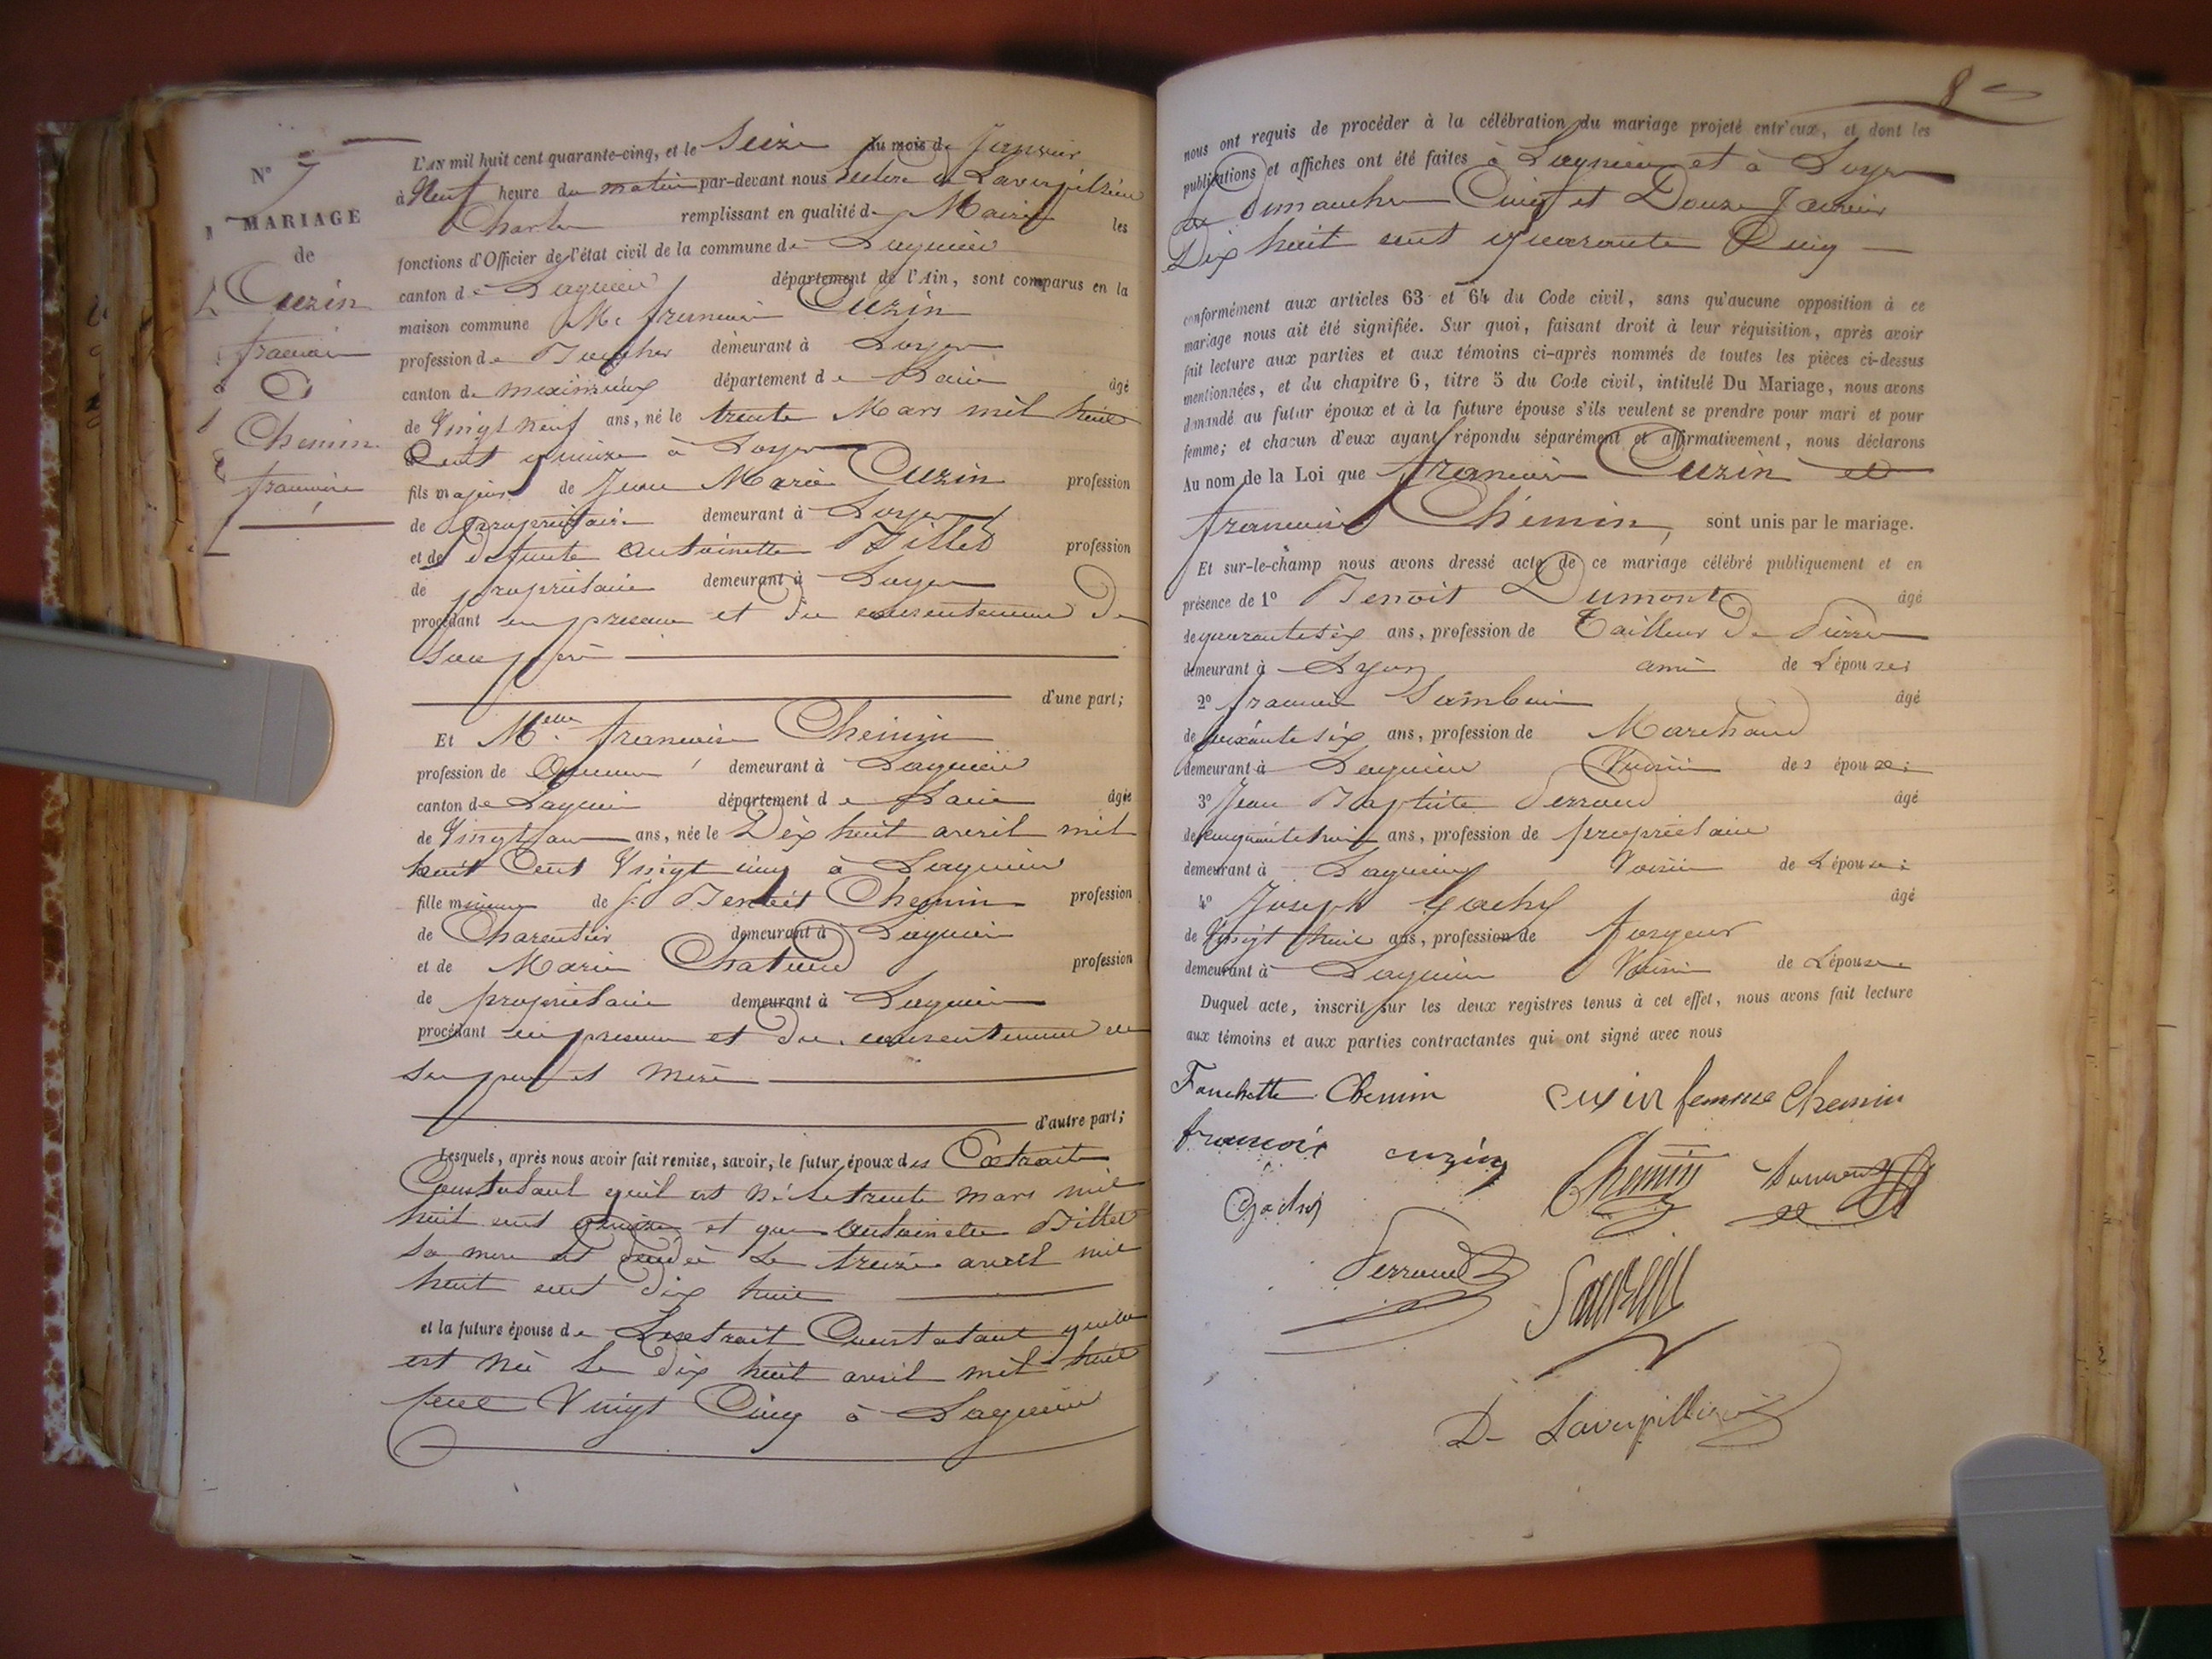 N° 7
MARIAGE
de
Cuzin
françois
&
Chemin
françoise
L'AN mil huit cent quarante-cinq, et le Seize du mois de Janvier
à Neuf heure du matin par-devant nous de Laverpilière
Charles remplissant en qualité de Maire les
fonctions d'Officier de l'état civil de la commune de Lagnieu
canton de Lagnieu département de l'Ain, sont comparus en la
maison commune Mr françois Cuzin
profession de Boucher demeurant à Loyes
canton de meximieux département de Lain âgé
de Vingt neuf ans, né le trente Mars mil huit
Cent quinze à Loyes
fils majeur de Jean Marie Cuzin profession
de propriétaire demeurant à Loyes
et de defunte antoinette Billet profession
de propriétaire demeurant à Loyes
procédant en presence et du consentement de
Son père
d'une part;
Et Melle françoise Chemin
profession de demeurant à Lagnieu
canton de Lagnieu département de Lain âgée
de Vingt ans, née le Dix huit avril mil
huit Cent Vingt cinq à Lagnieu
fille mineure de Benoit Chemin profession
de Charpentier demeurant à Lagnieu
et de Marie profession
de propriétaire demeurant à Lagnieu
procédant en presence et du consentement de
ses père et Mère
d'autre part;
Lesquels, après nous avoir fait remise, savoir, le futur époux des Extraits
Constatant quil est né le trente mars mil
huit cent quinze et que antoinette Billet
Sa mere est décédée Le treize avril mil
huit cent dix huit
et la future épouse de Lextrait Constatant quelle
est née le dix huit avril mil huit
cent Vingt Cinq à Lagnieu
8
nous ont requis de procéder à la célébration du mariage projeté entr'eux, et dont les
publications et affiches ont été faites à Lagnieu et à Loyes
les dimanches Cinq et Douze Janvier
Dix huit cent quarante Cinq
conformément aux articles 63 et 64 du Code civil, sans qu'aucune opposition à ce
mariage nous ait été signifiée. Sur quoi, faisant droit à leur réquisition, après avoir
fait lecture aux parties et aux témoins ci-après nommés de toutes les pièces ci-dessus
mentionnées, et du chapitre 6, titre 5 du Code civil, intitulé Du Mariage, nous avons
demandé au futur époux et à la future épouse s'ils veulent se prendre pour mari et pour
femme; et chacun d'eux ayant répondu séparément et affirmativement, nous déclarons
Au nom de la Loi que françois Cuzin et
françoise Chemin, sont unis par le mariage.
Et sur-le-champ nous avons dressé acte de ce mariage célébré publiquement et en
présence de 1° Benoit Dumont âgé
de quarante six ans, profession de Tailleur de Pierre
demeurant à Lyon ami de L'épouse;
2° françois Sambuin âgé
de soixante six ans, profession de Marchand
demeurant à Lagnieu Voisin des épouse;
3° Jean Baptiste Perraud âgé
de cinquante huit ans, profession de propriétaire
demeurant à Lagnieu Voisin de L'épouse;
4° Joseph Gachy âgé
de Vingt huit ans, profession de forgeur
demeurant à Lagnieu Voisin de Lépouse
Duquel acte, inscrit sur les deux registres tenus à cet effet, nous avons fait lecture
aux témoins et aux parties contractantes qui ont signé avec nous
Fanchette Chemin cuzin femme Chemin
francois cuzin Chemin
Gachy
Perraud
De Laverpillière